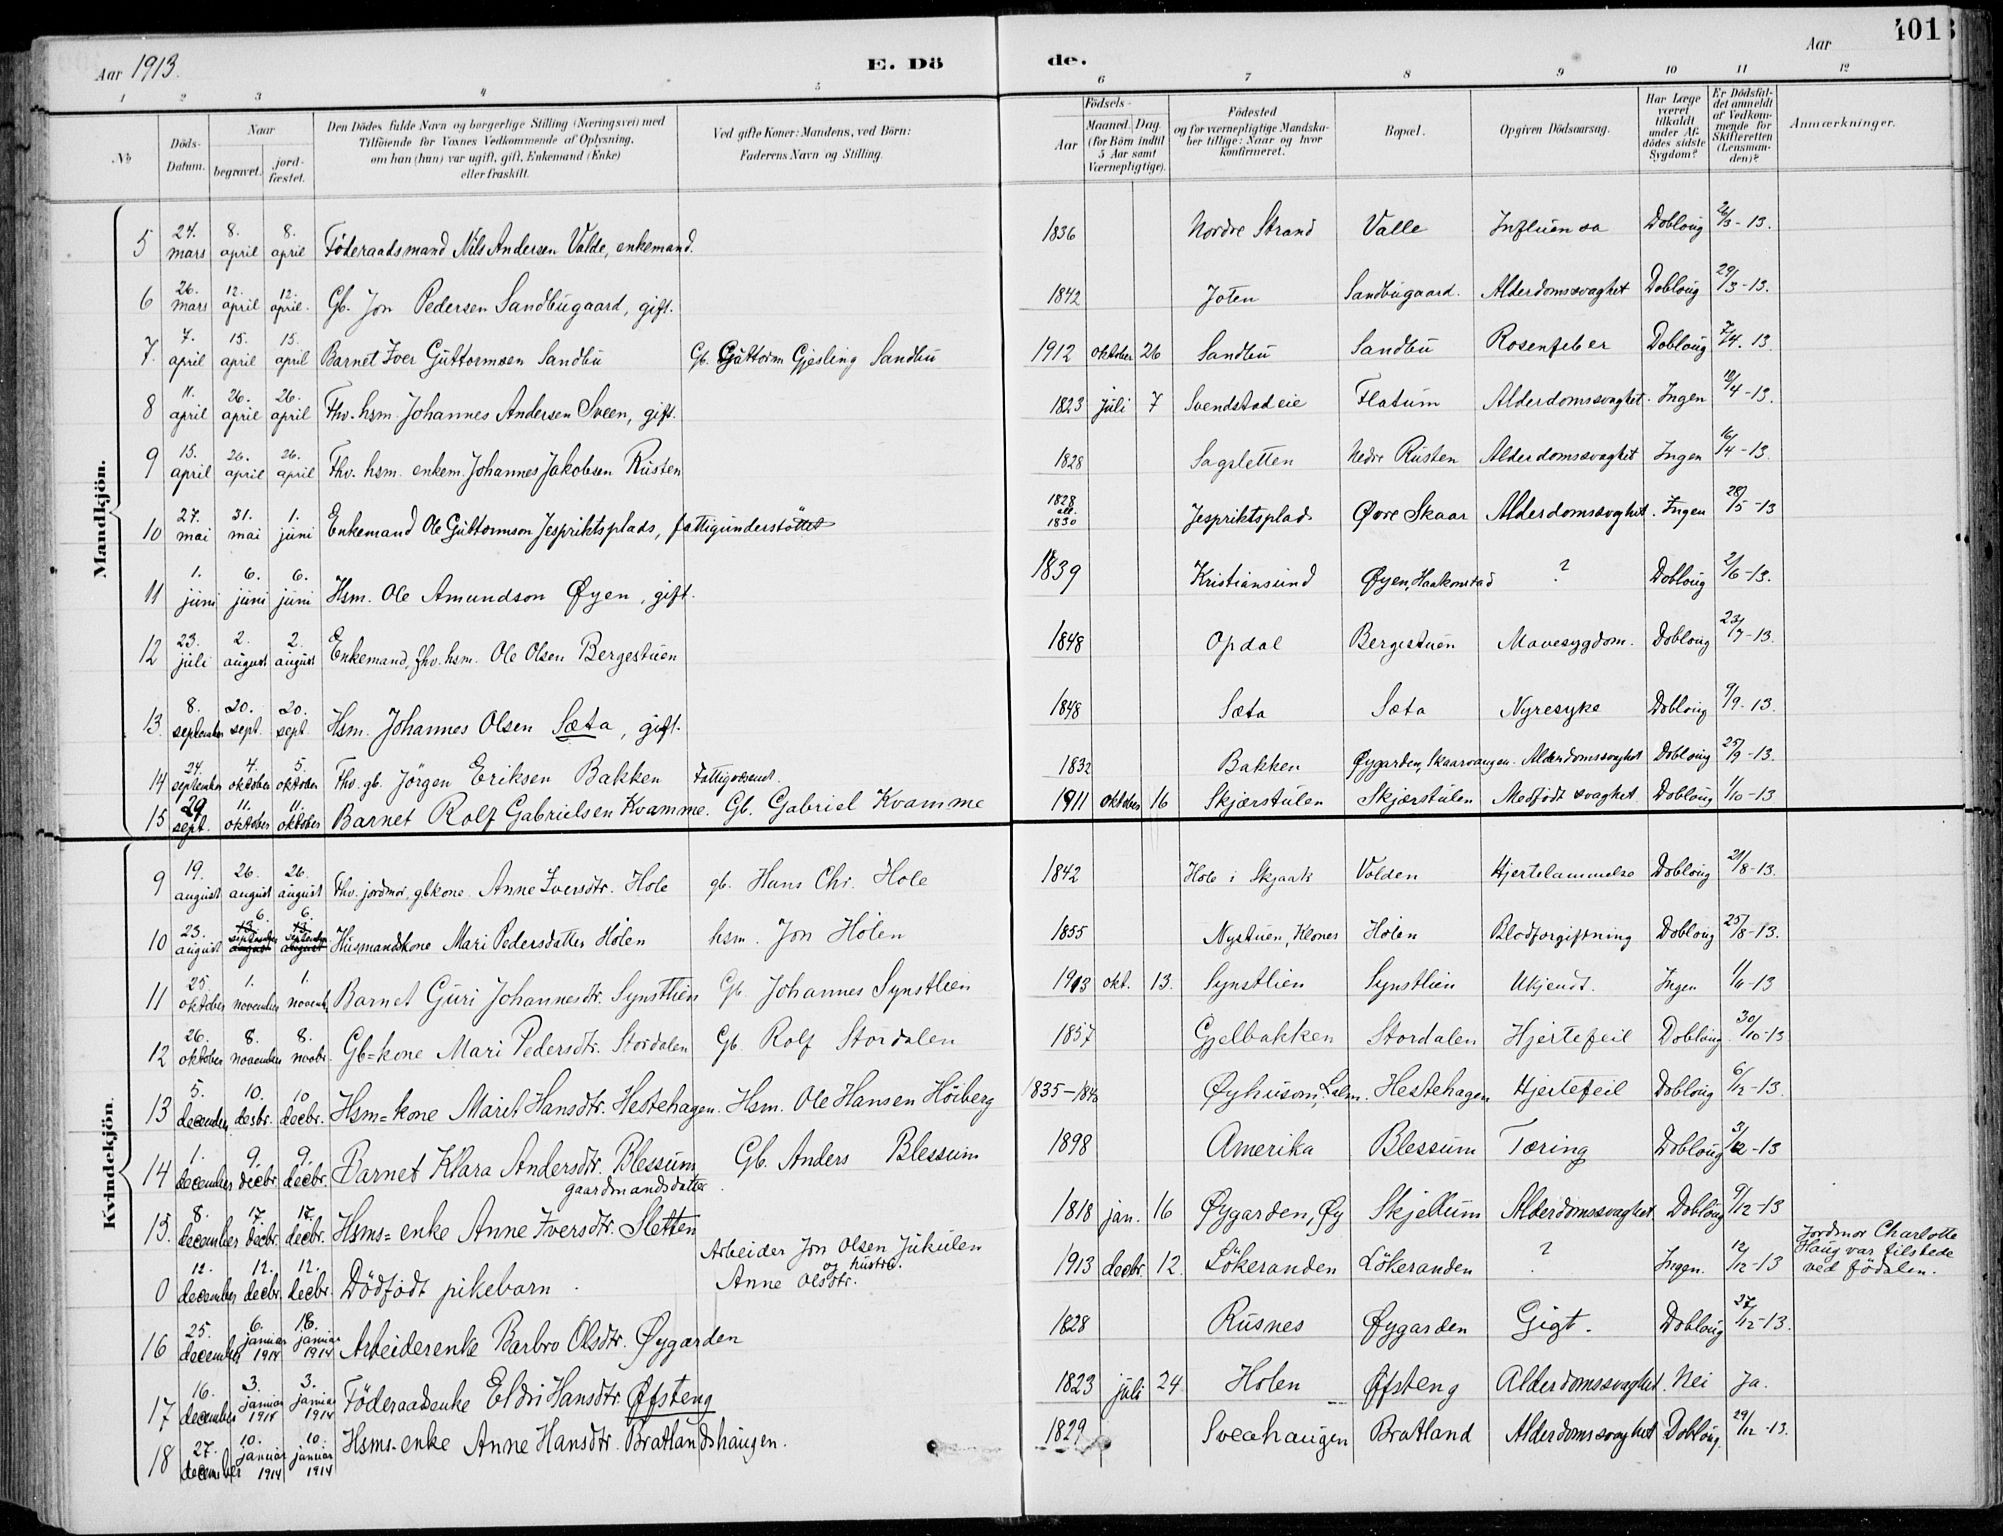 Aar 1913. E. Dö de. Aar 401
1 2 3 4 5 6 7 8 9 10 11 12
No Döds-Datum. Naar begravet. jordfæstet. Den Dödes fulde Navn og borgerlige Stilling (Næringsvei) med Tilföiende for Voxnes Vedkommende af Oplysning, om han (hun) var ugift, gift, Enkemand (Enke) eller fraskilt. Ved gifte Koner: Mandens, ved Börn: Faderens Navn og Stilling. Födsels- Aar Maaned. Dag. (for Börn indtil 5 Aar samt Værnepligtige). Födested og for værnepligtige Mandskaber tillige: Naar og hvor konfirmeret. Bopæl. Opgiven Dödsaarsag. Har Læge været tilkaldt under Afdödes sidste Sygdom? Er Dödsfaldet anmeldt af Vedkommende for Skifteretten (Lensmanden)? Anmærkninger.
Mandkjön.
5 24. mars 8. april 8. april Föderaadsmand Nils Andersen Valde, enkemand. 1836 Nordre Strand Valle Influensa Doblong 26/3-13.
6 26. mars 12. april 12. april. Gb. Jon Pedersen Sandbugaard, gift. 1842 Joten Sandbugaard. Alderdomssvaghet Doblong 29/3-13.
7. 7. april 15. april 15. april Barnet Iver Guttormsen Sandbu Gb. Guttorm Gjesling Sandbu 1912 oktober 26 Sandbu Sandbu Rosenfeber Doblong 7/4.13.
8 11. april 26. april 26. april Fhv. hsm. Johannes Andersen Sveen, gift. 1823 juli 7 Svendstadeie Flatum Alderdomssvaghet. Ingen 12/4-13.
9 15. april 26. april 26. april Fhv. hsm. enkem. Johannes Jakobsen Rusten 1828 Sagsletten Nedre Rusten Alderdomssvaghet Ingen 16/4-13.
10 27. mai 31. mai 1. juni Enkemand Ole Guttormson Jespriktsplads, fattigunderstöttet 1828 all. 1830 Jespriktsplads Övre Skaar Alderdomssvaghet. Ingen 28/5-13
11 1. juni 6. juni 6. juni Hsm. Ole Amundson Øyen, gift. 1839 Kristiansund Øyen, Haakonstad ? Doblong 2/6-13.
12 23. juli 2. august 2. august Enkemand, fhv. hsm. Ole Olsen Bergestuen 1848 Opdal Bergestuen Mavesygdom. Doblong 23/7-13.
13. 8. september 20. sept. 20. sept. Hsm. Johannes Olsen Sæta, gift. 1848 Sæta Sæta Nyresyke Doblong 9/9-13.
14 24. september 4. oktober 5. oktober Fhv. gb. Jörgen Eriksen Bakken Fattigvæsenet. 1832 Bakken Øygarden, Skaarvangen. Alderdomssvaghet Doblong 25/9-13.
15 29 sept. 11. oktober 11. oktober Barnet Rolf Gabrielsen Kvamme. Gb. Gabriel Kvamme 1911 oktober 16 Skjærstulen Skjærstulen Medfödt svaghet. Doblong 1/10-13
Kvindekjön.
9 19. august 26. august 26. august Fhv. jordmor, gbkone. Anne Iversdtr. Hole gb. Hans Chr. Hole 1842 Hole i Skjaak Volden Hjertelammelse Doblong 21/8-13.
10 23. august 6. september 6. september Husmandskone Mari Pedersdatter Hölen hsm. Jon Hölen 1855 Nystuen, Klones Hölen Blodforgiftning Doblong 25/8-13.
11 25. oktober 1. november 1. novemb. Barnet Guri Johannesdtr. Synstlien Gb. Johannes Synstlien 1913 okt. 13. Synstlien Synstlien Ukjendt. Ingen 1/11-13
12 26. oktober 8. november 8. novbr. Gb=kone Mari Pedersdtr. Stordalen Gb. Rolf Stordalen 1857 Gjelbakken Stordalen Hjertefeil Doblong 30/10-13
13 5. december 10. desbr. 10 decbr. Hsm=kone Marit Hansdtr. Hestehagen. Hsm. Ole Hansen Höiberg 1835-1843 Øyhusom, Lalm. Hestehagen Hjertefeil Doblong 6/12-13.
14 1. december 9. decbr. 9. decbr. Barnet Klara Andersdtr. Blessum Gb. Anders Blessum 1898 Amerika Blessum Tæring Doblong 3/12-13
gaardmandsdatter.
15. 8. december 17. decbr. 17. decbr. Hsms=enke Anne Iversdtr. Sletten 1818 jan. 16 Øygarden, Øy Skjellum Alderdomssvaghet. Doblong 9/12-13
0 12. december 12. decbr. 12. decbr. Dödfödt pikebarn. Arbeider Jon Olsen Jukulen og hustru. Anne Olsdtr. 1913 decbr. 12. Lökeranden Lökeranden ? Ingen. 12/12-13 Jordmor Charlotte Haug var tilstede ved födslen.
16 25. december 6. januar 1914 18. januar 1914 Arbeiderenke Barbro Olsdtr. Øygarden 1828 Rusnes Øygarden Gigt. Doblong 27/12-13.
17 16. december 3. januar 1914 3. januar 1914 Föderaadsenke Eldri Hansdtr. Øfsteng 1823 juli 24 Holen Øfsteng Alderdomssvaghet. Nei Ja.
18 27. december 10. januar 1914 10. januar 1914 Hsms-enke Anne Hansdtr. Bratlandshaugen. 1829 Sveahaugen Bratland Alderdomssvaghet Doblong. 29/12-13.